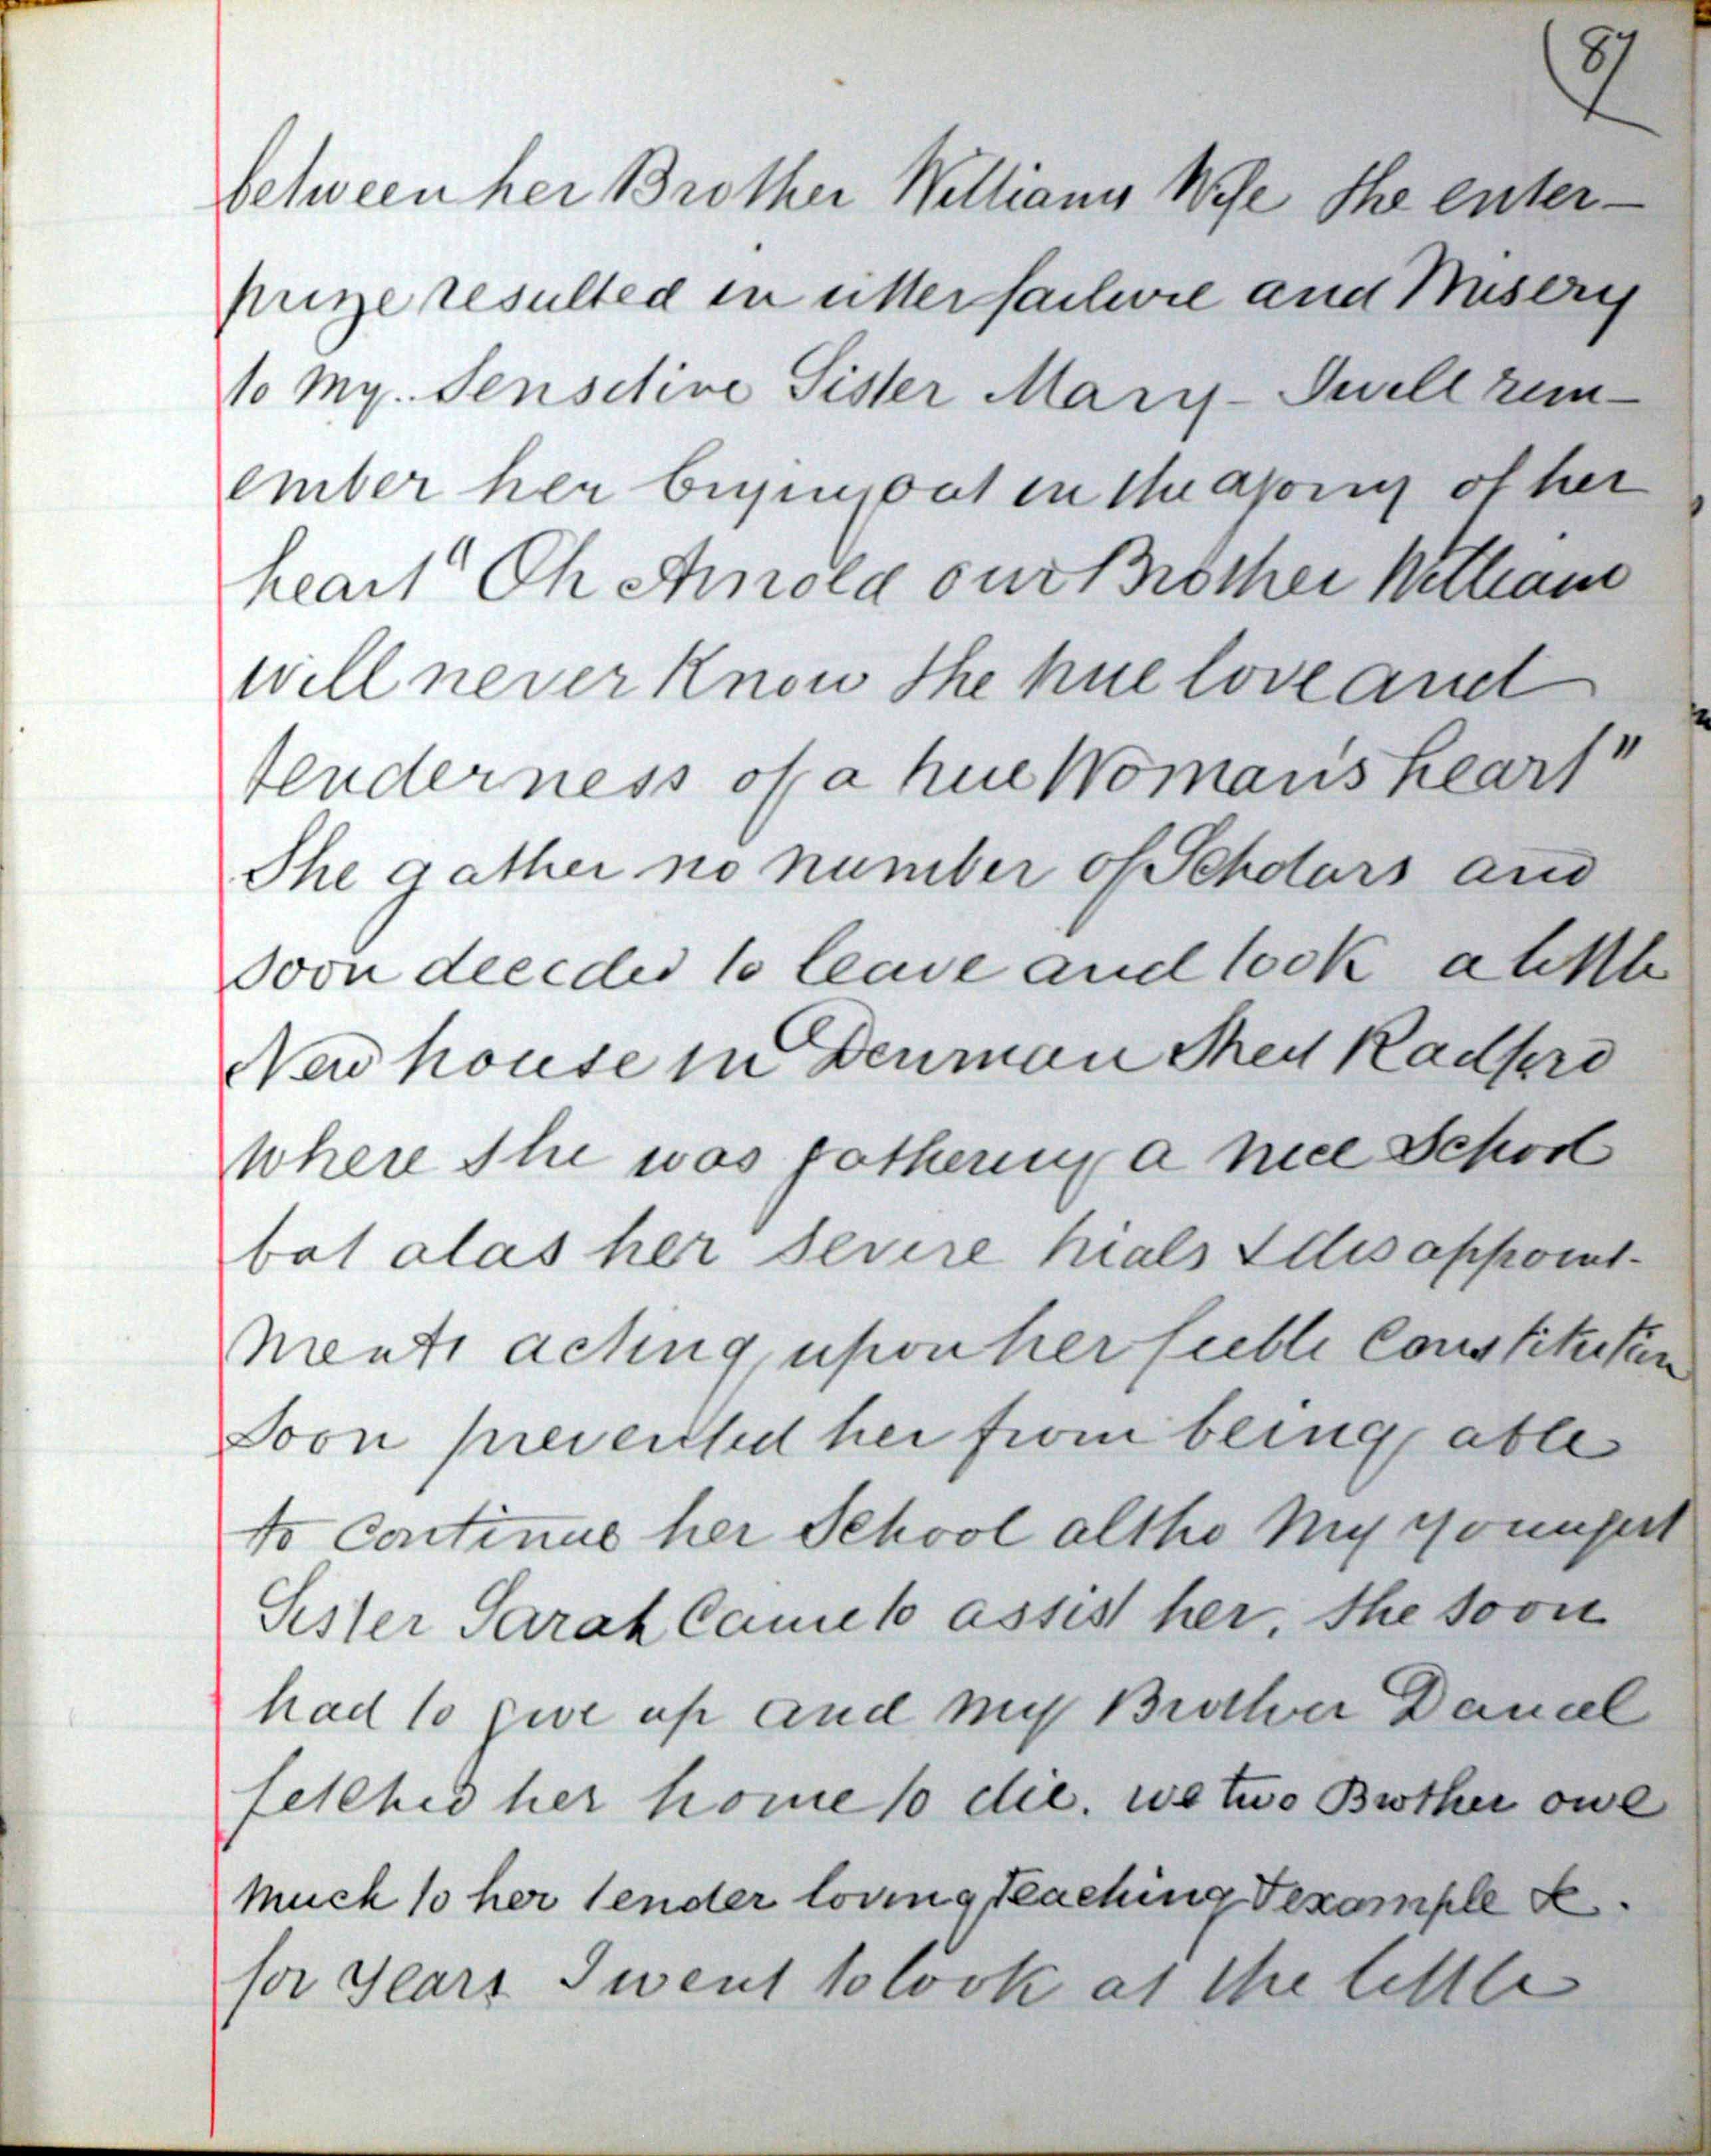 87
between her Brother Williams Wife the enter-
prize resulted in utter failure and Misery
to My Sensitive Sister Mary - I well rem-
ember her crying out in the agony of her
heart "Oh Arnold our Brother William
will never Know the true love and
tenderness of a true Woman's heart"
She gather no number of Scholars and
soon decided to leave and took a little
New house in Denman Street Radford
where she was gathering a nice School
but alas her severe trials & disappoint-
ments acting upon her feeble Constitution
Soon prevented her from being able
to Continue her School altho My youngest
Sister Sarah Came to assist her, she soon
had to give up and my Brother Daniel
fetched her home to die. we two Brother owe
much to her tender loving teaching & example &.
for years I went to look at the little